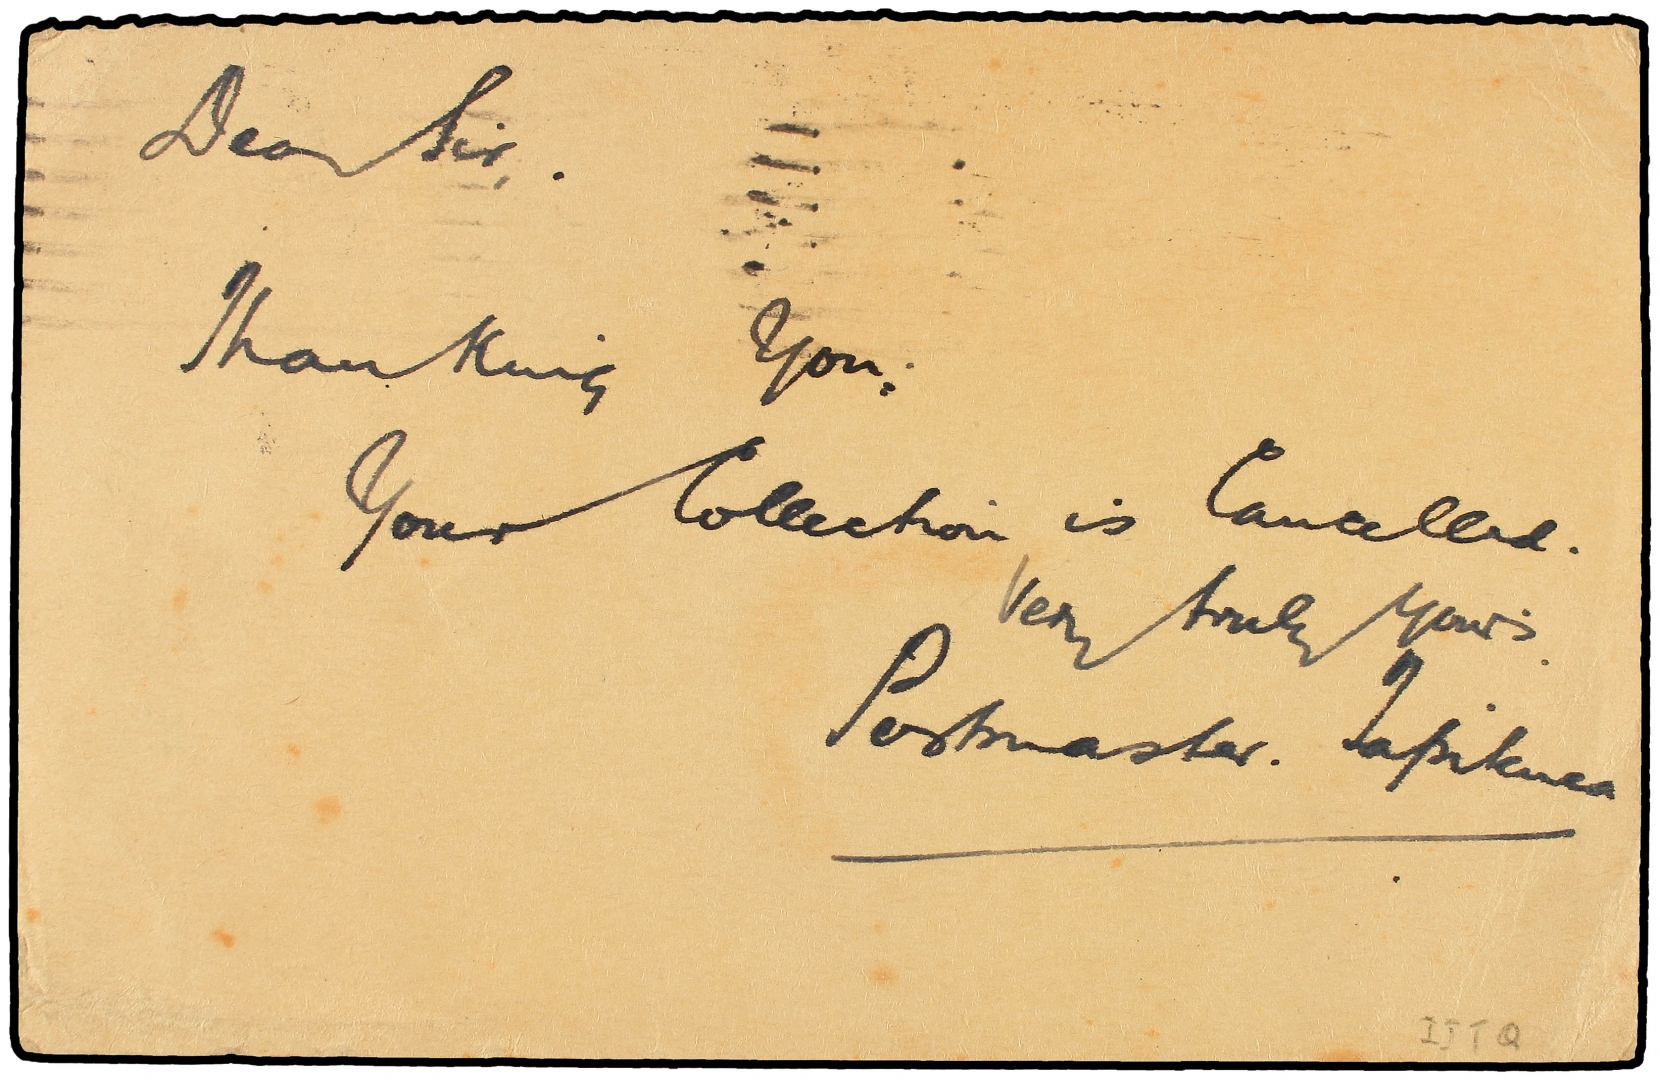 Dear Sir, .
Thanking You;
Your Collection is Cancelled.
Very truly Yours.
Postmaster. Tapiknea
IJTQ